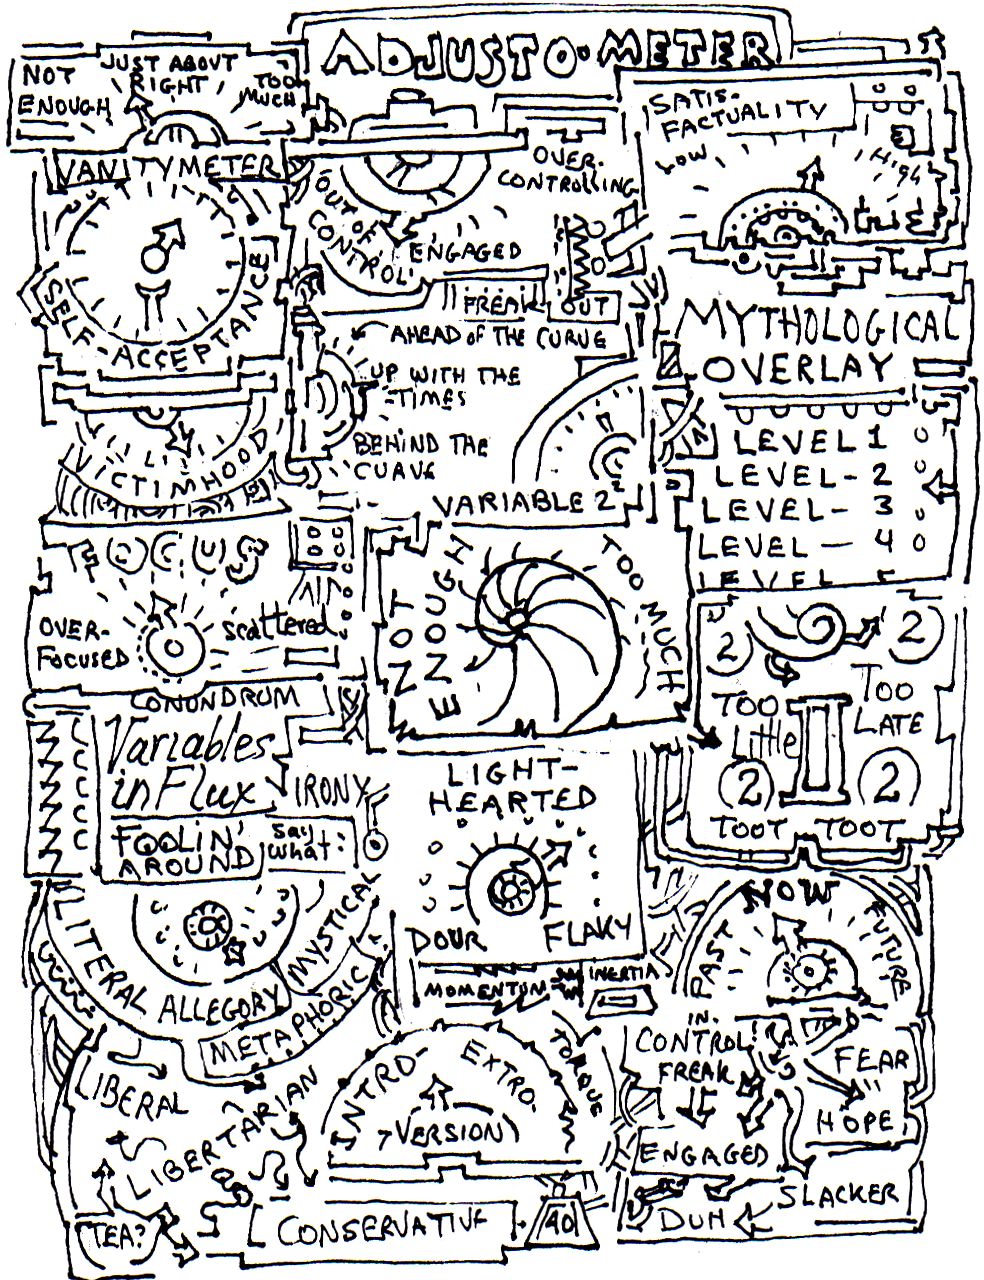 ADJUSTO-METER
NOT
ENOUGH
JUST ABOUT
RIGHT
TOO
MUCH
VANITYMETER
SELF-ACCEPTANCE
VICTIMHOOD
OVER-
CONTROLLING
OUT OF
CONTROL
ENGAGED
FREAK OUT
AHEAD OF THE CURVE
UP WITH THE
TIMES
BEHIND THE
CUAVE
VARIABLE 2
SATIS-
FACTUALITY
LOW
HIGH
MYTHOLOGICAL
OVERLAY
LEVEL 1
LEVEL-2
LEVEL-3
LEVEL-4
LEVEL 5
FOCUS
OVER-
FOCUSED
scattered
NOT
ENOUGH
TOO MUCH
2
2
TOO
Little
TOO
LATE
2
2
TOOT TOOT
CONUNDRUM
Variables
in Flux
IRONY
FOOLIN'
AROUND
say
what:
LITERAL
ALLEGORY
MYSTICAL
METAPHORIC
LIGHT-
HEARTED
DOUR
FLAKY
MOMENTUM
INERTIA
NOW
PAST
FUTURE
LIBERAL
LIBERTARIAN
TEA?
CONSERVATIVE
INTRO-
EXTRO-
VERSION
TORQUE
40
IN-
CONTROL
FREAK
FEAR
HOPE
ENGAGED
SLACKER
DUH